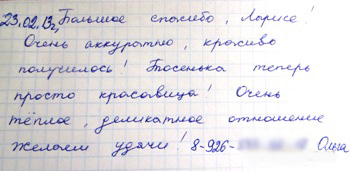 23.02.13г, Большое спасибо, Ларисе!
Очень аккуратно, красиво
получилось! Тосенька теперь
просто красавица! Очень
тёплое, деликатное отношение
желаем удачи! 8-926- Ольга